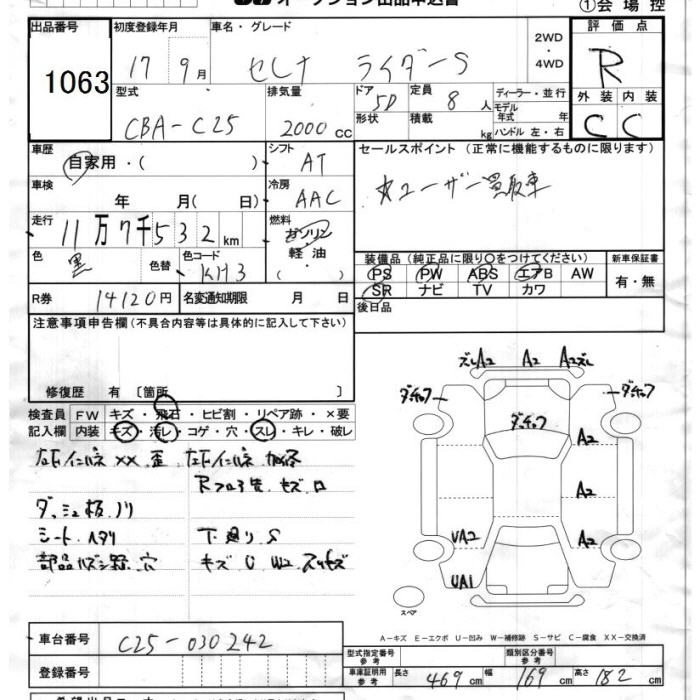 オークション出品申込書
①会場控
出品番号
1063
初度登録年月
17 9月
車名・グレード
セレナ ライダーS
2WD・4WD
評価点
R
型式
CBA-C25
排気量
2000 cc
ドア
5D
形状
定員
8人
積載
kg
ディーラー・並行
モデル年式 年
ハンドル 左・右
外装 内装
C C
車歴
自家用・( )
シフト
AT
セールスポイント (正常に機能するものに限ります)
ユーザー買取車
車検
年 月( 日)
冷房
AAC
走行
11万7千532km
燃料
ガソリン
軽・油
( ・ )
色
黒
色替
色コード
KH3
装備品(純正品に限り○をつけてください)
新車保証書
PS PW ABS エアB AW
SR ナビ TV カワ
有・無
R券
14120円
名変通知期限 月 日
後日品
注意事項申告欄(不具合内容等は具体的に記入して下さい)
修復歴 有 〔箇所 〕
検査員記入欄
FW キズ・飛石・ヒビ割・リペア跡・×要
内装 キズ・汚レ・コゲ・穴・スレ・キレ・破レ
ダッシュ板ノリ
シート
下廻りS
キズ U W2
ズレA2 A2 A2ズレ
A2
A2
VA2 A2
UA1
スペア
A-キズ E-エクボ U-凹み W-補修跡 S-サビ C-腐食 XX-交換済
車台番号
C25-030242
登録番号
型式指定番号 参考
類別区分番号 参考
車庫証明用 参考
長さ 469cm 幅 169cm 高さ 182cm